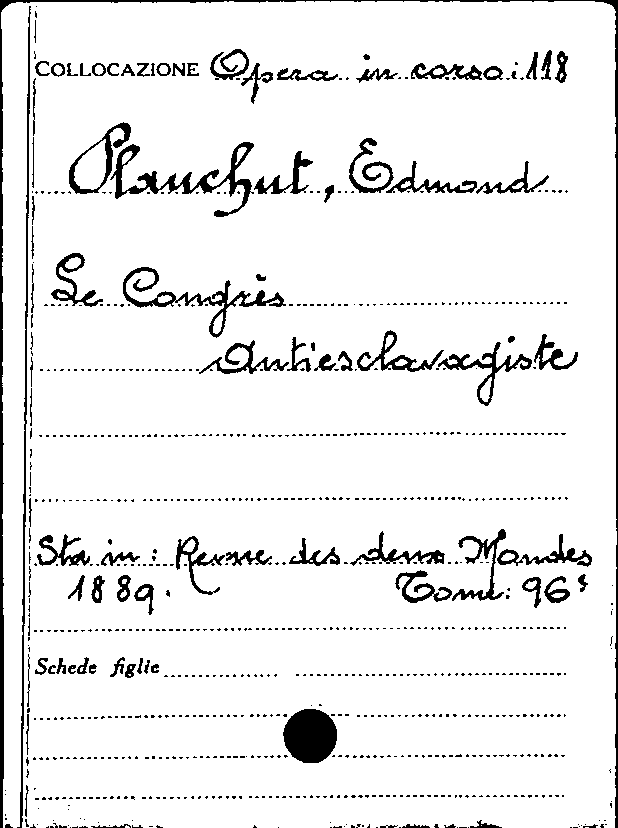 COLLOCAZIONE Opera in corso: 118
Plauchut, Edmond
Le Congrès
Antiesclavagiste
Sta in: Revue des deux Mondes
1889. Tome: 96
Schede figlie